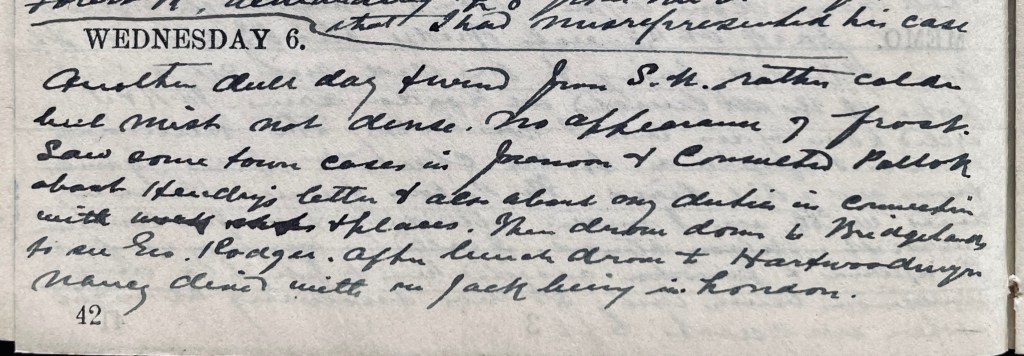 that I had misrepresented his case
WEDNESDAY 6.
Another dull day & wind from S.W. rather colder
but mist not dense. No appearance of frost.
Saw some town cases in forenoon & Consulted Pollok
about Hendry's letter & also about my duties in connection
with & places. Then drove down to Bridgelands
to see Geo. Rodger. After lunch drove to Hartwoodmyres
Nancy dined with us Jack being in London.
42